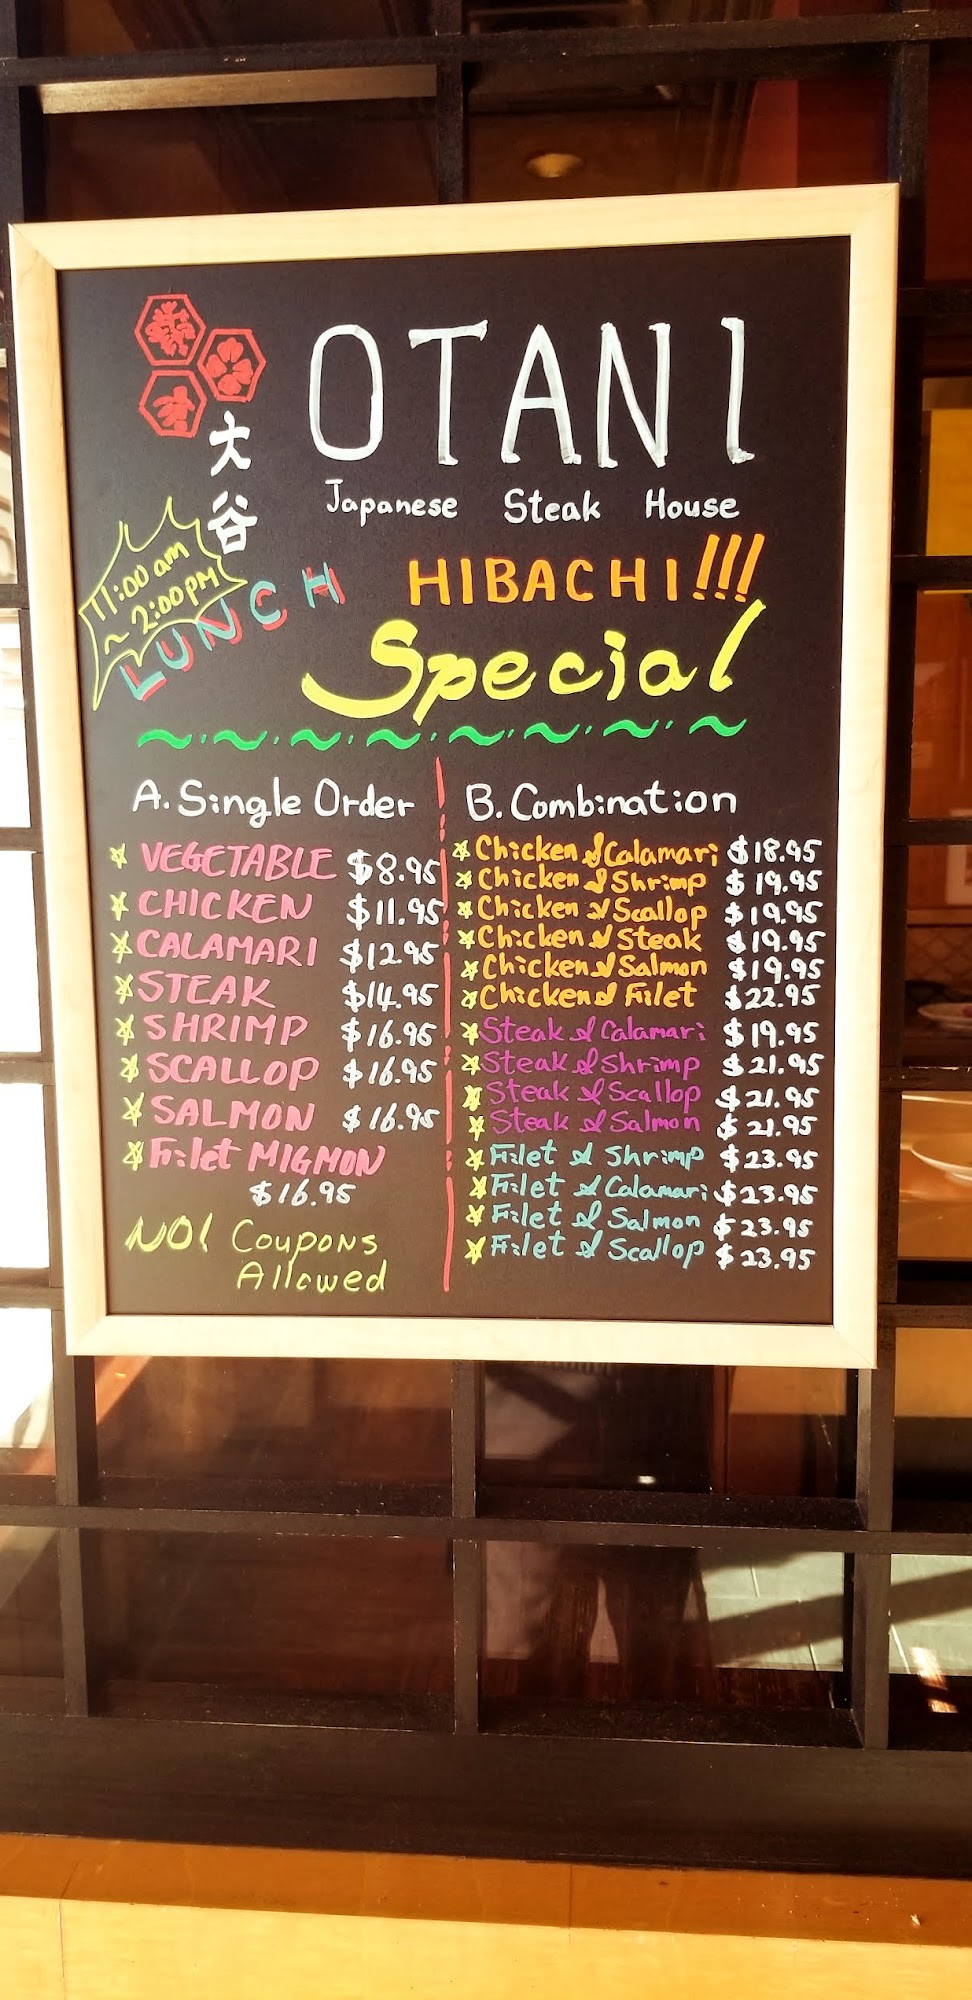 OTANI
大谷
Japanese Steak House
11:00 am
~ 2:00PM
LUNCH
HIBACHI!!!
Special
A. Single Order
VEGETABLE $8.95
CHICKEN $11.95
CALAMARI $12.95
STEAK $14.95
SHRIMP $16.95
SCALLOP $16.95
SALMON $16.95
Filet MIGMON
$16.95
NO! Coupons
Allowed
B. Combination
Chicken & Calamari $18.95
Chicken & Shrimp $19.95
Chicken & Scallop $19.95
Chicken & Steak $19.95
Chicken & Salmon $19.95
Chicken & Filet $22.95
Steak & Calamari $19.95
Steak & Shrimp $21.95
Steak & Scallop $21.95
Steak & Salmon $21.95
Filet & Shrimp $23.95
Filet & Calamari $23.95
Filet & Salmon $23.95
Filet & Scallop $23.95